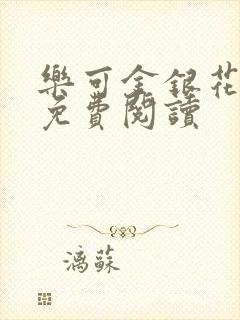 樂可金銀花
免費閱讀
漓蘇